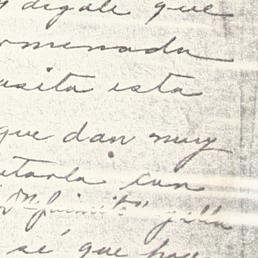 y digale que
omenada
asita esta
que dan muy
utarla con
se que hay